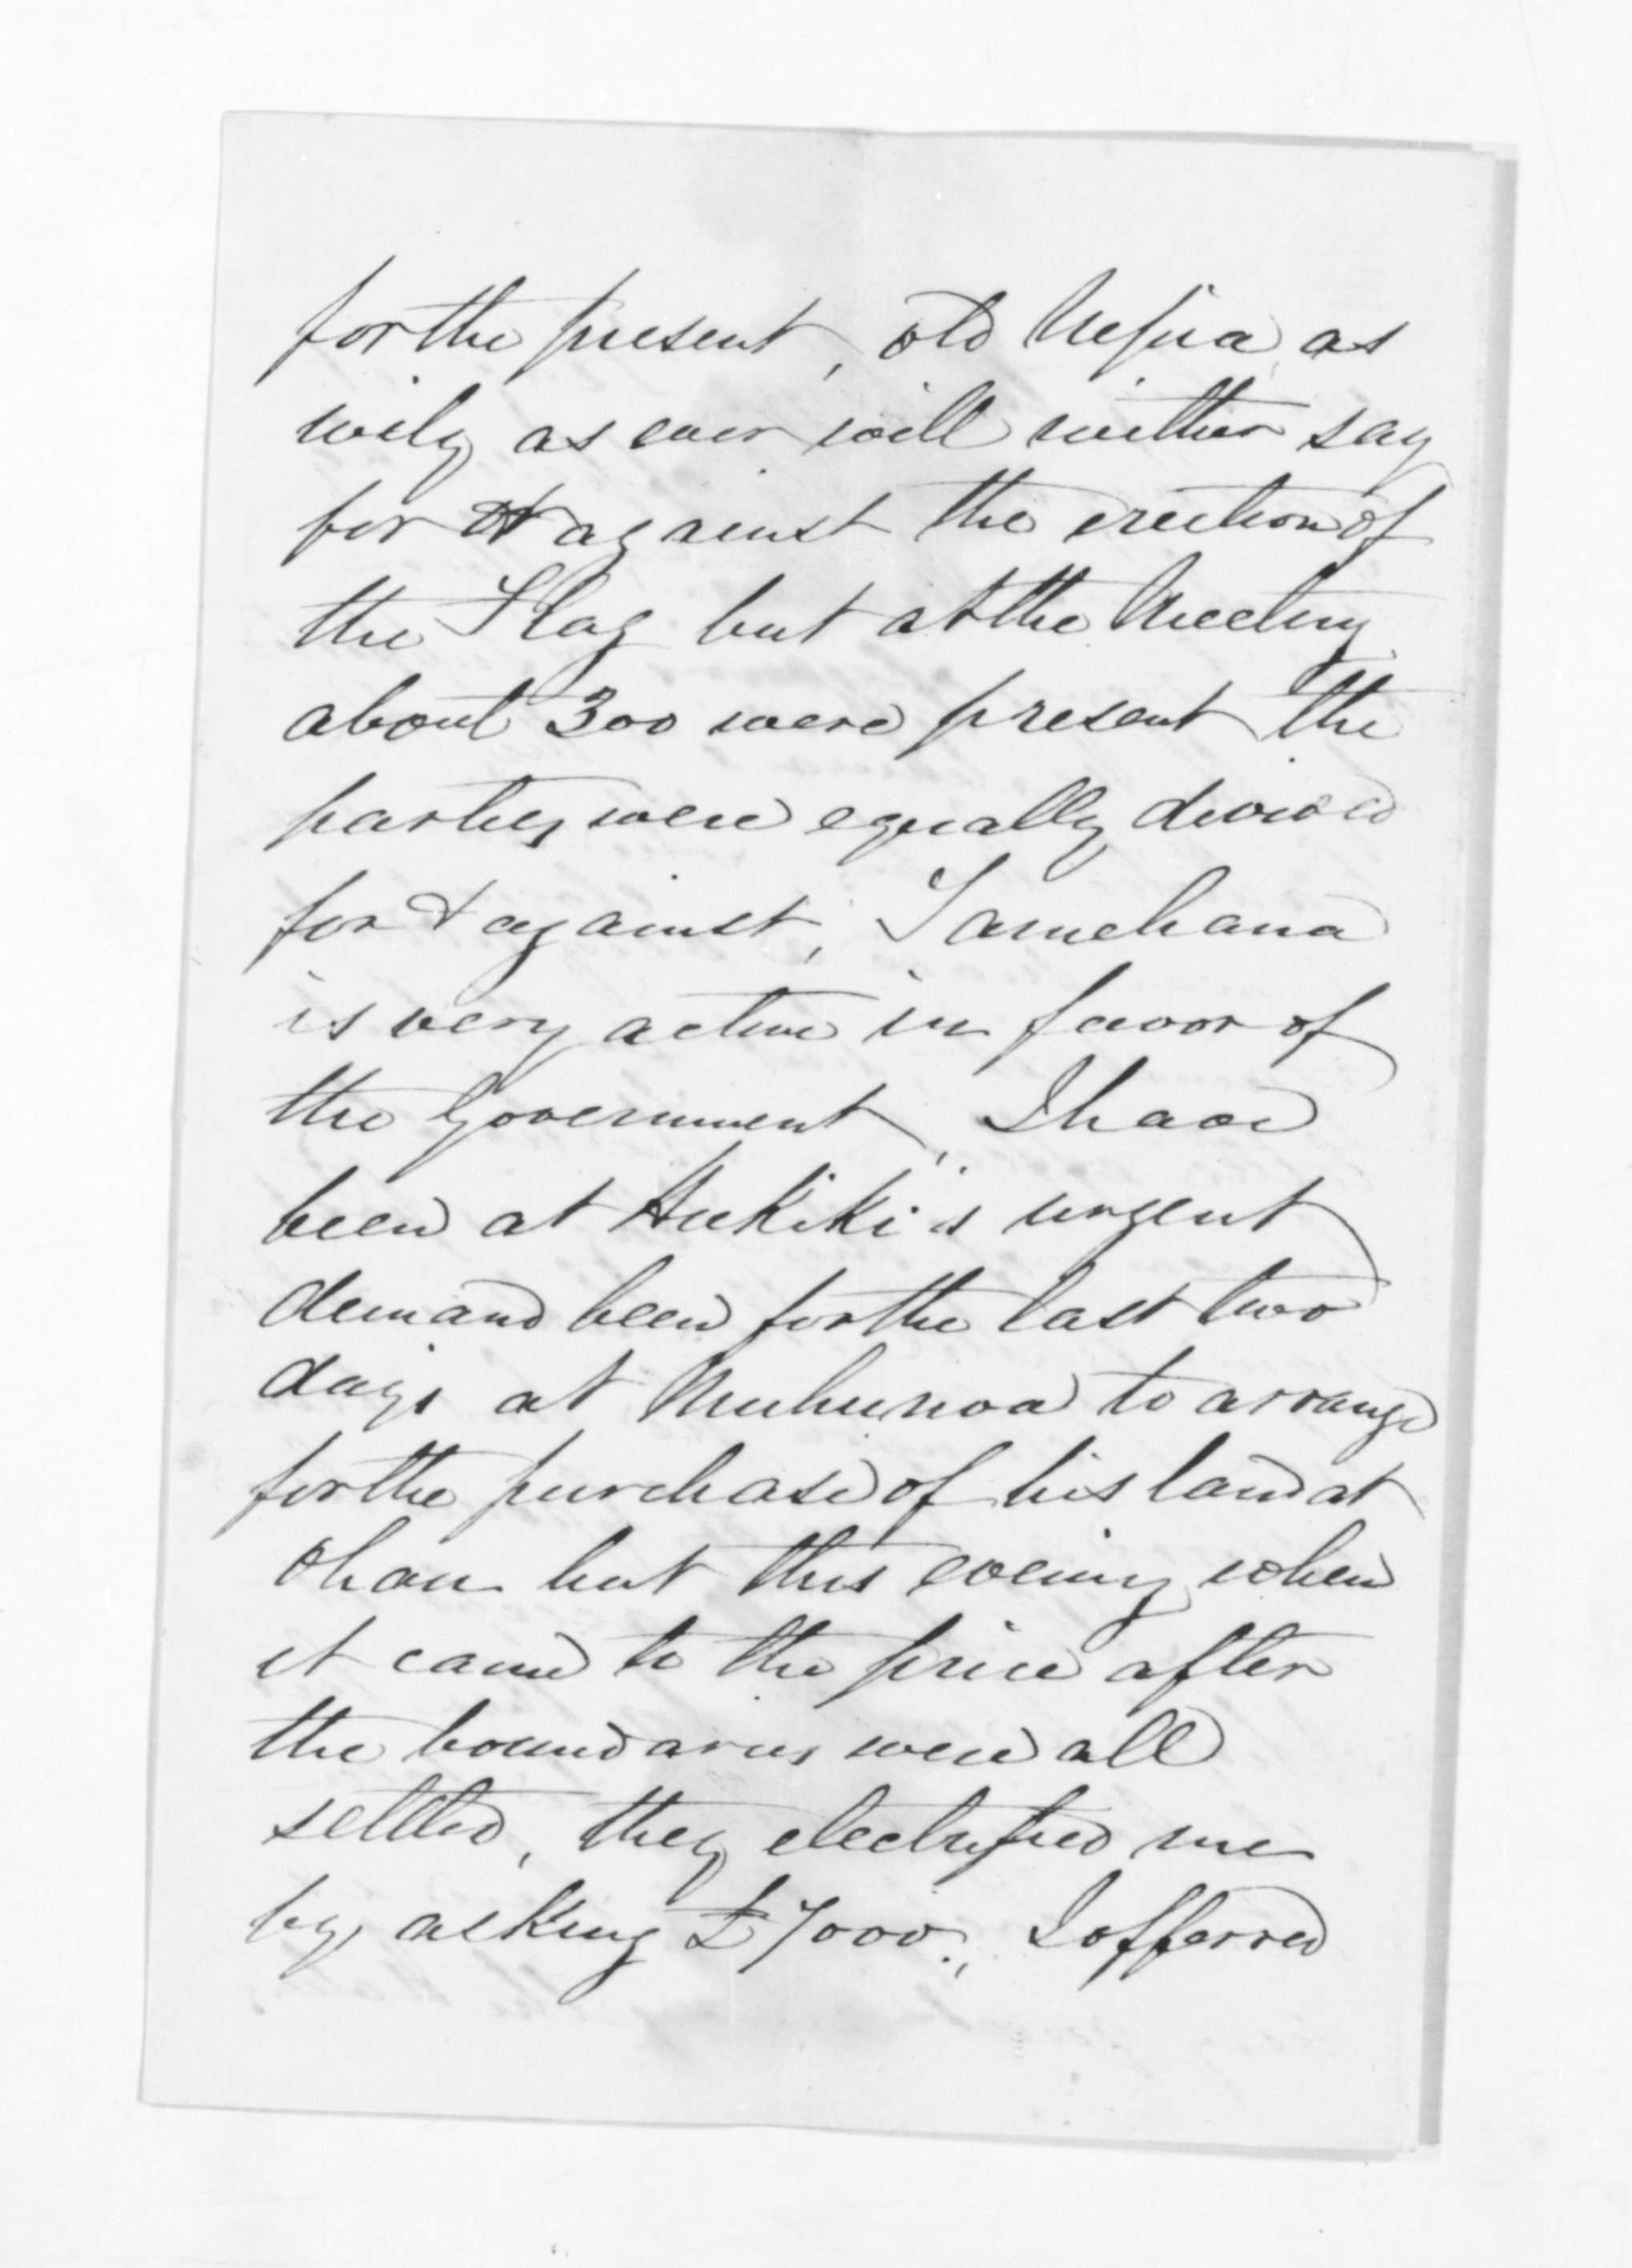 for the present, old Nepia as
wily as ever will neither say
for or against the erection of
the Flag but at the Meeting
about 300 were present the
parties were equally divided
for & against, Tamehana
is very active in favor of
the Government, I have
been at Hukiki's urgent
demand been for the last two
days at Muhunoa to arrange
for the purchase of his land at
Ohau but this evening when
it came to the price after
the boundaries were all
settled, they electrified me
by asking £7000., I offerred